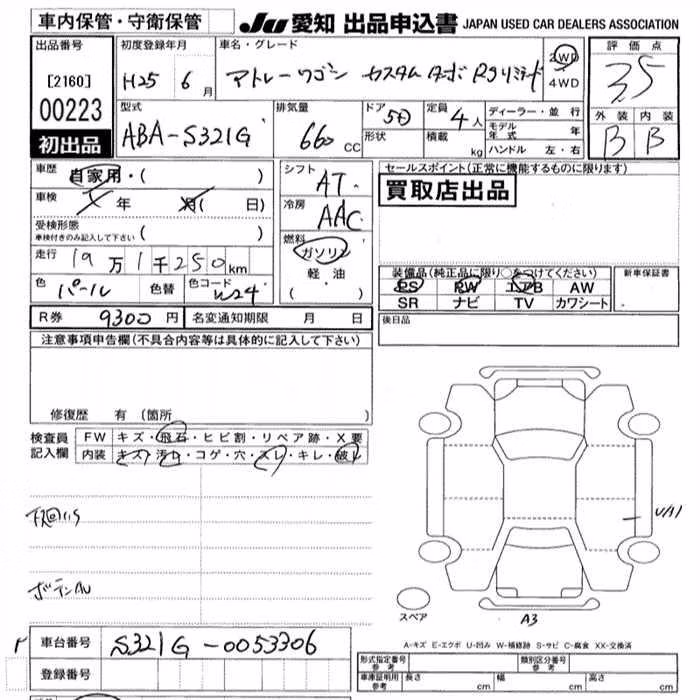 車内保管・守衛保管
JU 愛知 出品申込書 JAPAN USED CAR DEALERS ASSOCIATION
出品番号
[2160]
00223
初出品
初度登録年月
H25 6月
車名・グレード
アトレーワゴン カスタムターボRSリミテッド
2WD
4WD
評価点
3.5
外装 内装
B B
型式
ABA-S321G
排気量
660 CC
ドア 5D
形状
定員 4人
積載 kg
ディーラー・並行
モデル年式 年
ハンドル 左・右
車歴 自家用・( )
車検 X 年 月( 日)
受検形態
車検付きのみ記入して下さい ( )
走行 19万1千250km
色 パール 色替 色コード W24
シフト AT
冷房 AAC
燃料
ガソリン
軽油
( ・ )
セールスポイント(正常に機能するものに限ります)
買取店出品
装備品(純正品に限り○をつけてください)
PS PW エアB AW
SR ナビ TV カワシート
新車保証書
後日品
R券 9300円 名変通知期限 月 日
注意事項申告欄(不具合内容等は具体的に記入して下さい)
修復歴 有 (箇所 )
検査員記入欄
FW キズ・飛石・ヒビ割・リペア跡・X要
内装 キズ・汚レ・コゲ・穴・スレ・キレ・破レ
下回りS
ボデーAU
U/A1
スペア
A3
A-キズ E-エクボ U-凹み W-補修跡 S-サビ C-腐食 XX-交換済
車台番号 S321G-0053306
登録番号
形式指定番号 参考
類別区分番号 参考
車庫証明用 参考 長さ cm 幅 cm 高さ cm